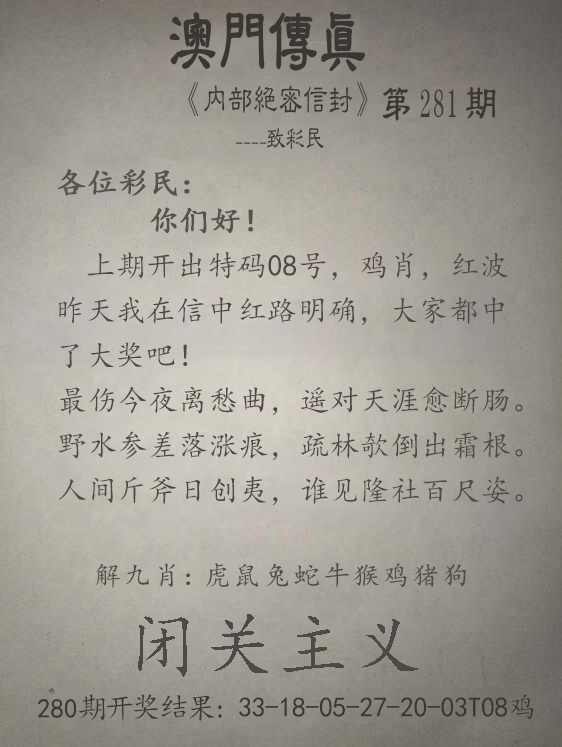 澳門傳眞
《内部絕密信封》第281期
----致彩民
各位彩民：
你们好！
上期开出特码08号，鸡肖，红波
昨天我在信中红路明确，大家都中
了大奖吧！
最伤今夜离愁曲，遥对天涯愈断肠。
野水参差落涨痕，疏林欹倒出霜根。
人间斤斧日创夷，谁见隆社百尺姿。
解九肖：虎鼠兔蛇牛猴鸡猪狗
闭关主义
280期开奖结果：33-18-05-27-20-03T08鸡